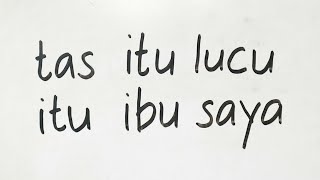 tas itu lucu
itu ibu saya